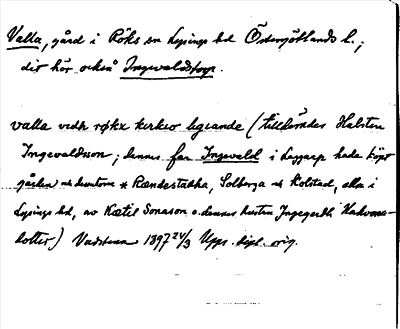 Valla, gård i Röks sn Lysings hd Östergötlands l.;
där hör också Ingevaldstorp.
valla vedh røkx kirkio ligiande (tillhördes Halsten
Ingevaldsson; dennes far Ingevald i Laggarp hade köpt
gården och dessutom * Rændestadha, Solberga och Kolstad, alla i
Lysings hd, av Kætil Jonason o. dennes hustru Ingegerdh Hakvons-
dotter) Vadstena 1397 24/3 Upps. dipl. orig.